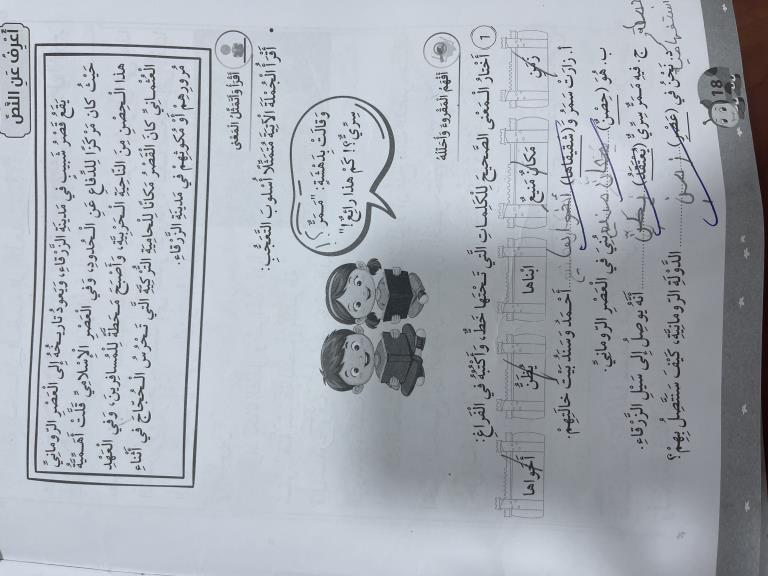 أَعْرِفُ عَنِ النَّصِّ
يَقَعُ قَصْرُ شَبيب في مَدينَةِ الزَّرْقاءِ، وَيَعودُ تاريخُهُ إِلى الْعَصْرِ الرّومانِيِّ
حَيْثُ كانَ مَرْكَزًا لِلدِّفاعِ عَنِ الْحُدودِ، وَفي الْعَصْرِ الْإِسْلامِيِّ قَلَّتْ أَهَمِّيَّةُ
هذا الْحِصْنِ مِنَ النّاحِيَةِ الْحَرْبِيَّةِ، وَأَصْبَحَ مَحَطَّةً لِلْمُسافِرينَ، وَفي الْعَهْدِ
الْعُثْمانِيِّ كانَ الْقَصْرُ مَكانًا لِلْحامِيَةِ التُّرْكِيَّةِ الَّتي تَحْرُسُ الْحُجّاجَ في أَثْناءِ
مُرورِهِمْ أَوْ مُكوثِهِمْ في مَدينَةِ الزَّرْقاءِ.
أَقْرَأُ وَأَتَمَثَّلُ الْمَعْنى
• أَقْرَأُ الْجُمْلَةَ الْآتِيَةَ مُتَمَثِّلًا أُسْلوبَ التَّعَجُّبِ:
وَقالَتْ بِدَهْشَةٍ: "مَمَرٌّ
سِرِّيٌّ؟! كَمْ هذا رائِعٌ!"
أَفْهَمُ الْمَقْروءَ وَأُحَلِّلُهُ
1 أَخْتارُ الْمَعْنى الصَّحيحَ لِلْكَلِماتِ الَّتي تَحْتَها خَطٌّ، وَأَكْتُبُهُ في الْفَراغِ:
زَمَنِ
مَكانٌ مَنيعٌ
ابْناها
يَظُنُّ
أَخَواها
أ. زارَتْ سَمَرُ وَ(شَقيقاها) أَحْمَدُ وَسَنَدٌ بَيْتَ خالَتِهِمْ.
ب. هُوَ (حِصْنٌ) بُنِيَ في الْعَصْرِ الرّومانِيِّ.
ج. فيهِ مَمَرٌّ سِرِّيٌّ (يُعْتَقَدُ) أَنَّهُ يوصِلُ إِلى سَيْلِ الزَّرْقاءِ.
د. نَحْنُ في (عَصْرِ) الدَّوْلَةِ الرّومانِيَّةِ، كَيْفَ سَنَتَّصِلُ بِهِمْ؟
18